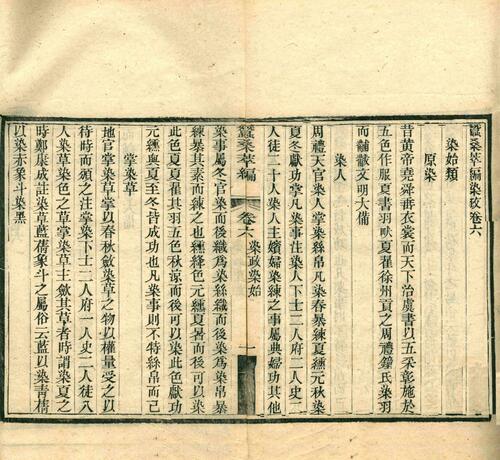 蠶桑萃編染政卷六
染始類
原染
昔黃帝堯舜垂衣裳而天下治虞書以五采彰施於
五色作服夏書羽畎夏翟徐州貢之周禮鍾氏染羽
而黼黻文明大備
染人
周禮天官染人掌染絲帛凡染春暴練夏纁元秋染
夏冬獻功掌凡染事注染人下士二人府二人史二
人徒二十人染人主嬪婦染練之事屬典婦功其他
蠶桑萃編 卷六 染政染始 一
染事屬冬官染而後織為染絲織而後染為染帛暴
練暴其素而練之也纁絳色元纁夏暑而後可以染
此色夏夏翟其羽五色秋涼而後可以染此色獻功
元纁與夏至冬皆成功也凡染事則不特絲帛而已
掌染草
地官掌染草掌以春秋斂染草之物以權量受之以
待時而頒之注掌染下士二人府一人史二人徒八
人染草染色之草掌染草主斂其草者時謂染夏之
時鄭康成註染草藍蒨象斗之屬俗云藍以染青蒨
以染赤象斗染黑